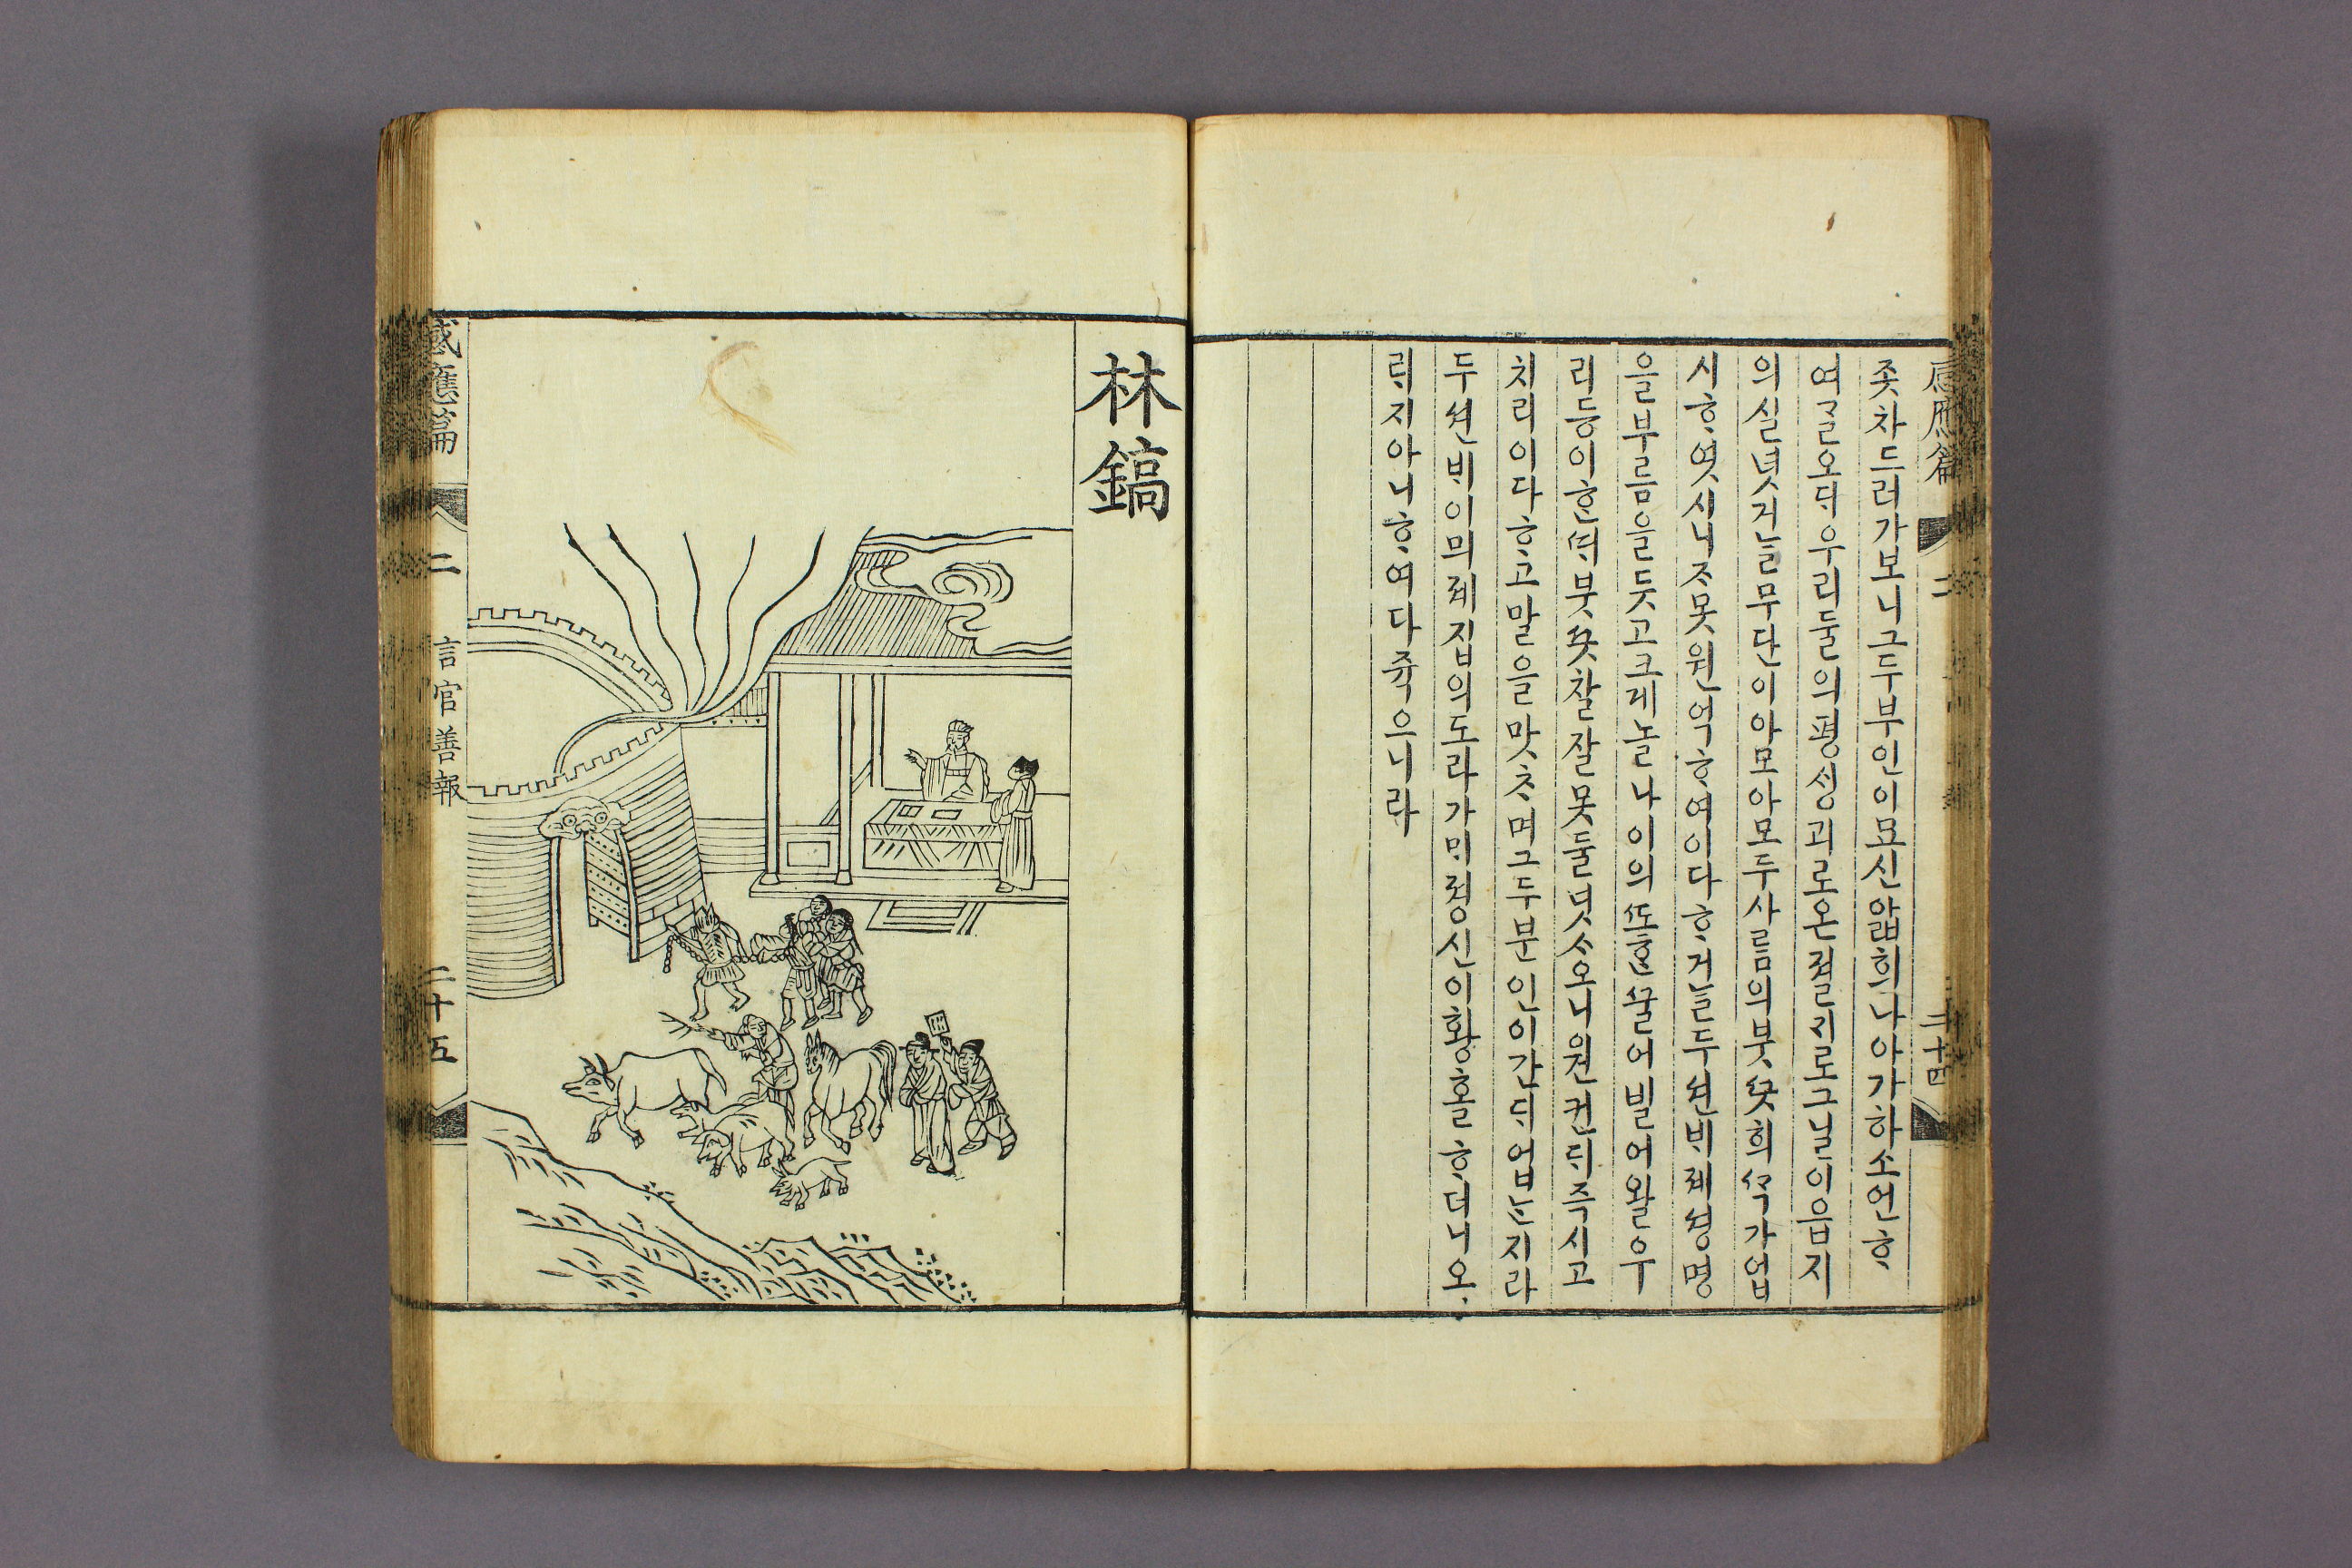 感應篇 二 二十四
좃차드러가보니그두부인이묘신앏희나아가하소연ᄒᆞ
여ᄀᆞᆯ오ᄃᆡ우리둘의평ᄉᆡᆼ괴로온졀ᄀᆡ로그닐이음지
의실녓거늘무단이아모아모두사ᄅᆞᆷ의붓ᄭᅳᆺ희ᄭᅥᆨ가업
시ᄒᆞ엿시니ᄌᆞ못원억ᄒᆞ여이다ᄒᆞ거늘두션ᄇᆡ졔셩명
을부ᄅᆞᆷ을듯고크게놀나이의ᄯᅩᄒᆞᆫᄭᅮᆯ어빌어왈우
리등이ᄒᆞᆫᄯᆡ붓ᄭᅳᆺ찰잘못둘넛ᄉᆞ오니원컨ᄃᆡ즉시고
치리이다ᄒᆞ고말을맛ᄎᆞ며그두부인이간ᄃᆡ업ᄂᆞᆫ지라
두션ᄇᆡ이믜졔집의도라가ᄆᆡ졍신이황홀ᄒᆞ더니오
ᄅᆡ지아니ᄒᆞ여다쥭으니라
林鎬
感應篇 二 言官善報 二十五